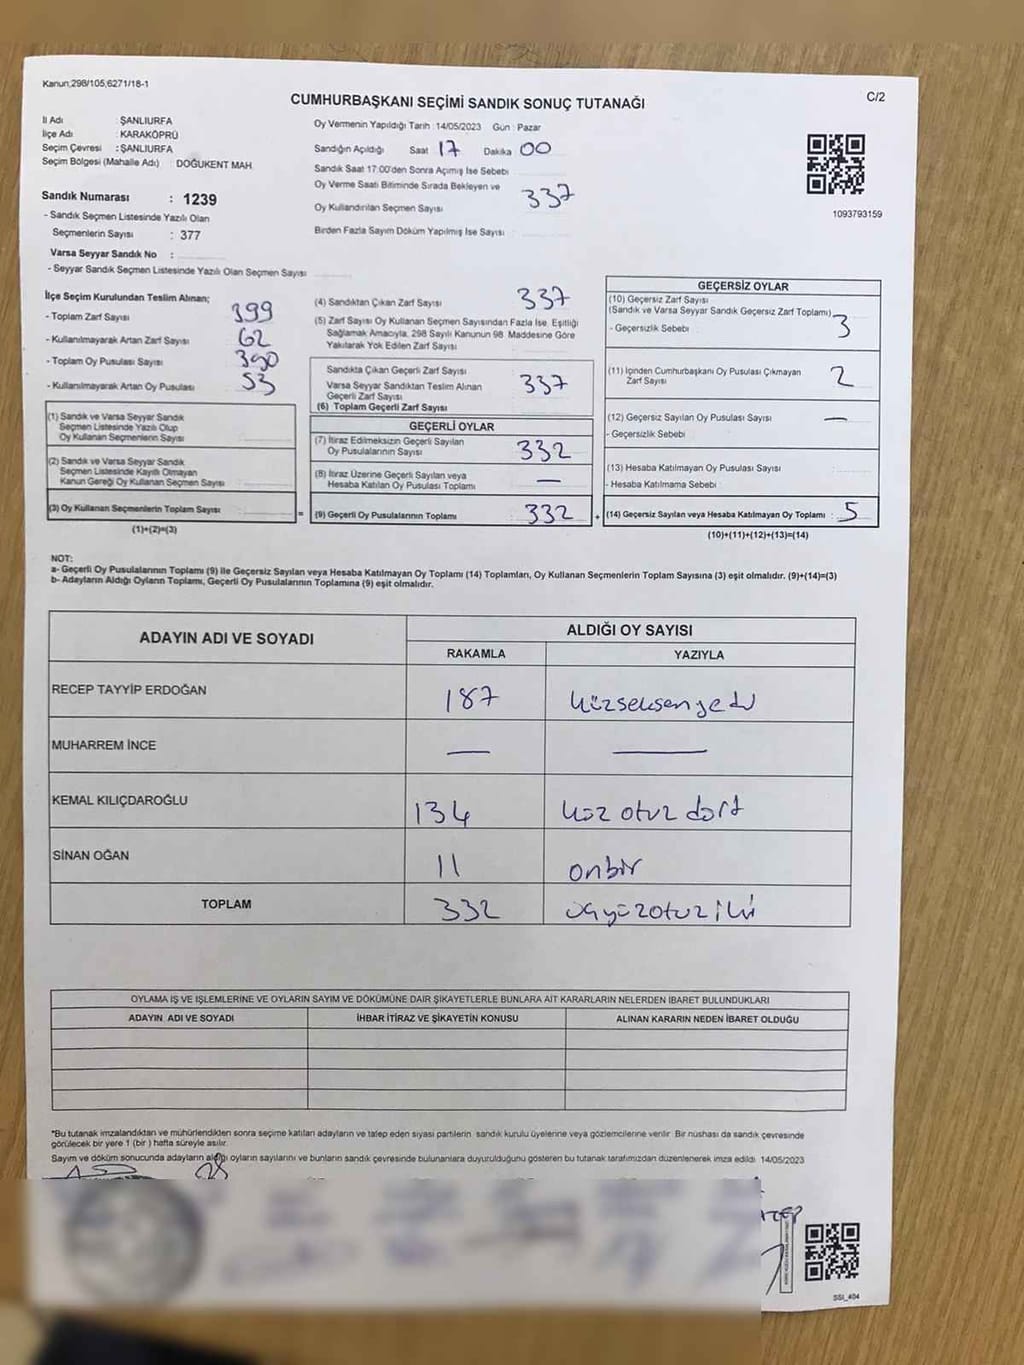 Kanun;298/105,6271/18-1
C/2
CUMHURBAŞKANI SEÇİMİ SANDIK SONUÇ TUTANAĞI
İl Adı : ŞANLIURFA
İlçe Adı : KARAKÖPRÜ
Seçim Çevresi : ŞANLIURFA
Seçim Bölgesi (Mahalle Adı) : DOĞUKENT MAH.
Sandık Numarası : 1239
- Sandık Seçmen Listesinde Yazılı Olan
Seçmenlerin Sayısı : 377
Varsa Seyyar Sandık No :
- Seyyar Sandık Seçmen Listesinde Yazılı Olan Seçmen Sayısı
Oy Vermenin Yapıldığı Tarih : 14/05/2023 Gün : Pazar
Sandığın Açıldığı Saat 17 Dakika 00
Sandık Saat 17:00'den Sonra Açımış İse Sebebi
Oy Verme Saati Bitiminde Sırada Bekleyen ve
Oy Kullandırılan Seçmen Sayısı 337
Birden Fazla Sayım Döküm Yapılmış İse Sayısı
1093793159
İlçe Seçim Kurulundan Teslim Alınan;
- Toplam Zarf Sayısı 399
- Kullanılmayarak Artan Zarf Sayısı 62
- Toplam Oy Pusulası Sayısı 390
- Kullanılmayarak Artan Oy Pusulası 53
(1) Sandık ve Varsa Seyyar Sandık
Seçmen Listesinde Yazılı Olup
Oy Kullanan Seçmenlerin Sayısı
(2) Sandık ve Varsa Seyyar Sandık
Seçmen Listesinde Kayıtlı Olmayan
Kanun Gereği Oy Kullanan Seçmen Sayısı
(3) Oy Kullanan Seçmenlerin Toplam Sayısı =
(1)+(2)=(3)
(4) Sandıktan Çıkan Zarf Sayısı 337
(5) Zarf Sayısı Oy Kullanan Seçmen Sayısından Fazla İse, Eşitliği
Sağlamak Amacıyla, 298 Sayılı Kanunun 98. Maddesine Göre
Yakılarak Yok Edilen Zarf Sayısı
Sandıkta Çıkan Geçerli Zarf Sayısı
Varsa Seyyar Sandıktan Teslim Alınan 337
Geçerli Zarf Sayısı
(6) Toplam Geçerli Zarf Sayısı
GEÇERLİ OYLAR
(7) İtiraz Edilmeksizin Geçerli Sayılan
Oy Pusulalarının Sayısı 332
(8) İtiraz Üzerine Geçerli Sayılan veya
Hesaba Katılan Oy Pusulası Toplamı —
(9) Geçerli Oy Pusulalarının Toplamı 332 +
GEÇERSİZ OYLAR
(10) Geçersiz Zarf Sayısı
(Sandık ve Varsa Seyyar Sandık Geçersiz Zarf Toplamı) 3
- Geçersizlik Sebebi
(11) İçinden Cumhurbaşkanı Oy Pusulası Çıkmayan
Zarf Sayısı 2
(12) Geçersiz Sayılan Oy Pusulası Sayısı —
- Geçersizlik Sebebi
(13) Hesaba Katılmayan Oy Pusulası Sayısı
- Hesaba Katılmama Sebebi
(14) Geçersiz Sayılan veya Hesaba Katılmayan Oy Toplamı : 5
(10)+(11)+(12)+(13)=(14)
NOT:
a- Geçerli Oy Pusulalarının Toplamı (9) ile Geçersiz Sayılan veya Hesaba Katılmayan Oy Toplamı (14) Toplamları, Oy Kullanan Seçmenlerin Toplam Sayısına (3) eşit olmalıdır. (9)+(14)=(3)
b- Adayların Aldığı Oyların Toplamı, Geçerli Oy Pusulalarının Toplamına (9) eşit olmalıdır.
ADAYIN ADI VE SOYADI ALDIĞI OY SAYISI
RAKAMLA YAZIYLA
RECEP TAYYİP ERDOĞAN 187 Yüzseksenyedi
MUHARREM İNCE — —
KEMAL KILIÇDAROĞLU 134 yüz otuz dört
SİNAN OĞAN 11 onbir
TOPLAM 332 üçyüzotuziki
OYLAMA İŞ VE İŞLEMLERİNE VE OYLARIN SAYIM VE DÖKÜMÜNE DAİR ŞİKAYETLERLE BUNLARA AİT KARARLARIN NELERDEN İBARET BULUNDUKLARI
ADAYIN ADI VE SOYADI İHBAR İTİRAZ VE ŞİKAYETİN KONUSU ALINAN KARARIN NEDEN İBARET OLDUĞU
*Bu tutanak imzalandıktan ve mühürlendikten sonra seçime katılan adayların ve talep eden siyasi partilerin sandık kurulu üyelerine veya gözlemcilerine verilir. Bir nüshası da sandık çevresinde
görülecek bir yere 1 (bir) hafta süreyle asılır.
Sayım ve döküm sonucunda adayların aldığı oyların sayılarını ve bunların sandık çevresinde bulunanlara duyurulduğunu gösteren bu tutanak tarafımızdan düzenlenerek imza edildi. 14/05/2023
SSI_404